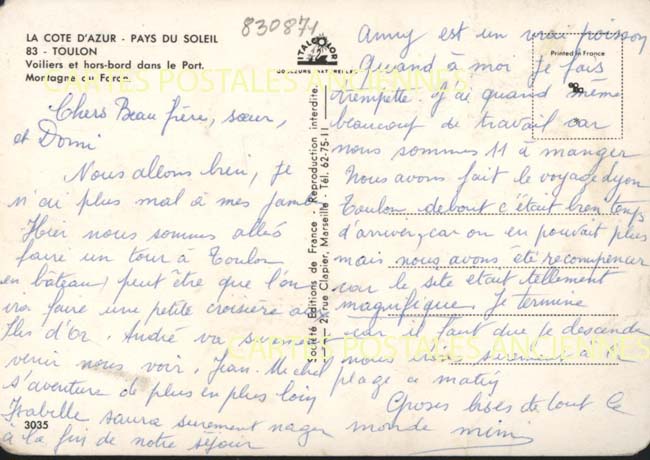 LA COTE D'AZUR - PAYS DU SOLEIL
83 - TOULON
Voiliers et hors-bord dans le Port.
Montagne du Faron.
830871
ITALCOLOR
COULEURS NATURELLES
Printed in France
Société Editions de France - Reproduction interdite.
2, rue Clapier, Marseille - Tél. 62-75-11
CARTES POSTALES ANCIENNES
CARTES POSTALES ANCIENNES
Chers Beau frère, sœur,
et Domi
Nous allons bien, je
n'ai plus mal à mes jambes
Hier nous sommes allés
faire un tour à Toulon
en bateau, peut être que l'on
ira faire une petite croisière aux
Iles d'Or. André va surement
venir nous voir. Jean-Michel
s'aventure de plus en plus loin
Isabelle saura surement nager
à la fin de notre séjour
3035
Anny est un vrai poisson
Quand à moi je fais
trempette. J'ai quand même
beaucoup de travail car
nous sommes 11 à manger
Nous avons fait le voyage Lyon
Toulon debout c'était bien temps
d'arriver, car on en pouvait plus
mais nous avons été récompenser
car le site était tellement
magnifique. Je termine
car il faut que je descende
nous irons surement à la
plage ce matin
Grosses bises de tout le
monde Mimi